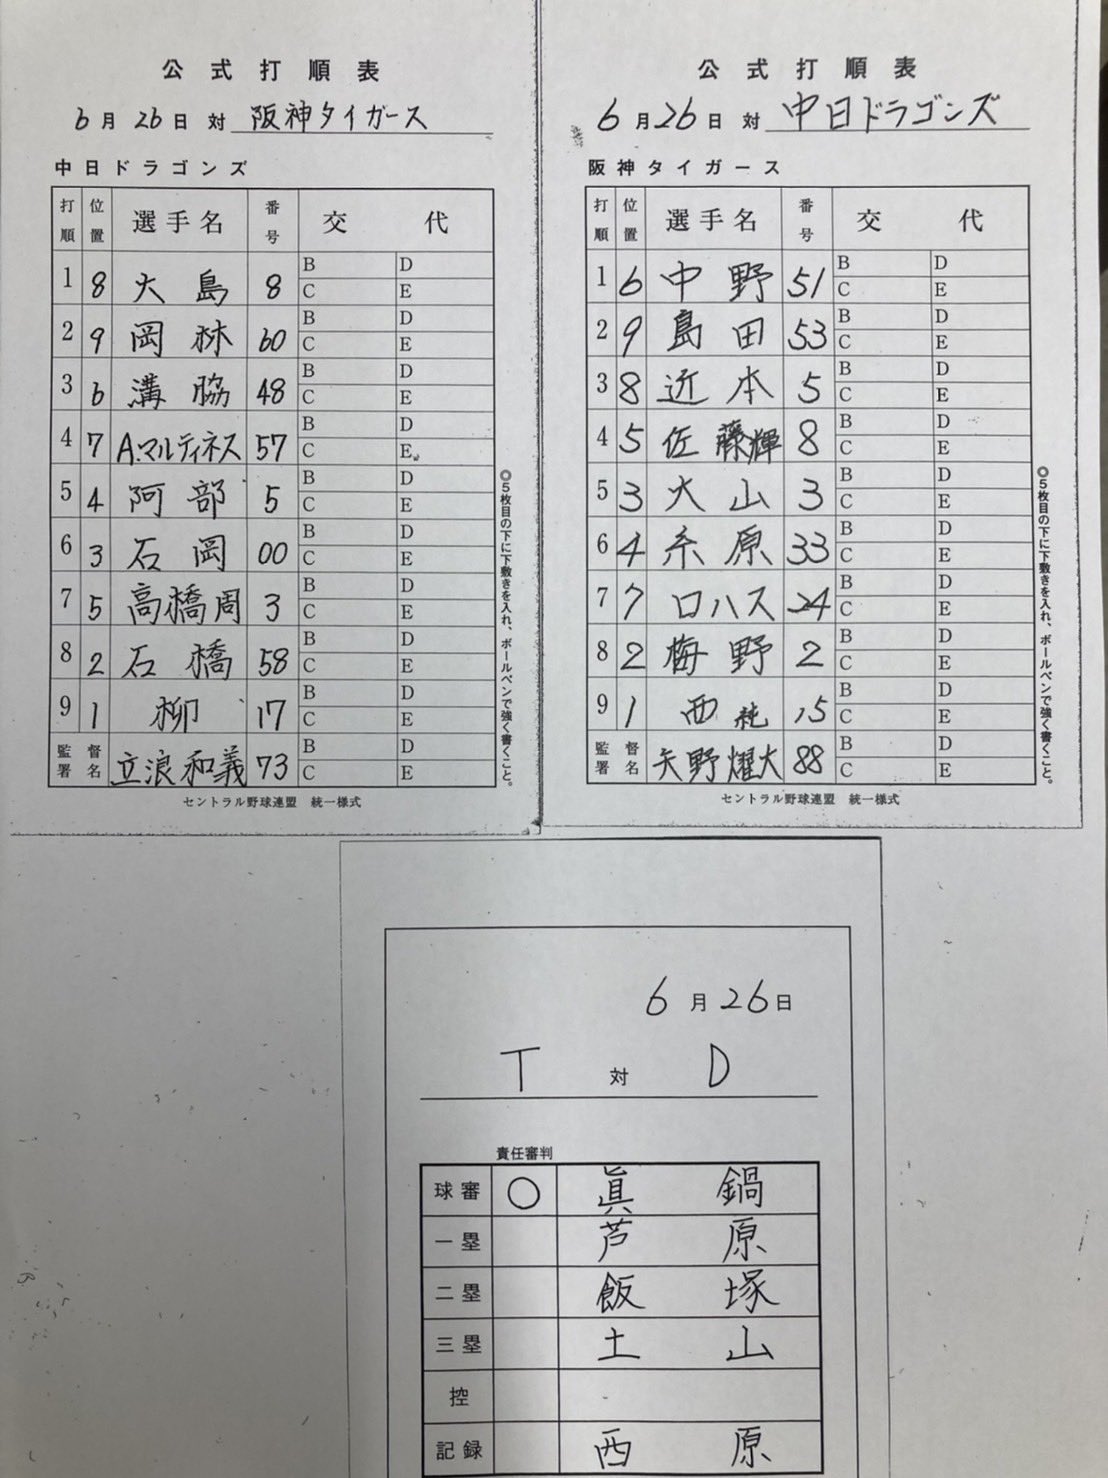 公式打順表
6月26日 対 阪神タイガース
中日ドラゴンズ
打順 位置 選手名 番号 交代
1 8 大島 8 B D C E
2 9 岡林 60 B D C E
3 6 溝脇 48 B D C E
4 7 A.マルティネス 57 B D C E
5 4 阿部 5 B D C E
6 3 石岡 00 B D C E
7 5 高橋周 3 B D C E
8 2 石橋 58 B D C E
9 1 柳 17 B D C E
監督署名 立浪和義 73 B D C E
セントラル野球連盟 統一様式
◎5枚目の下に下敷きを入れ、ボールペンで強く書くこと。
公式打順表
6月26日 対 中日ドラゴンズ
阪神タイガース
打順 位置 選手名 番号 交代
1 6 中野 51 B D C E
2 9 島田 53 B D C E
3 8 近本 5 B D C E
4 5 佐藤輝 8 B D C E
5 3 大山 3 B D C E
6 4 糸原 33 B D C E
7 7 ロハス 24 B D C E
8 2 梅野 2 B D C E
9 1 西純 15 B D C E
監督署名 矢野燿大 88 B D C E
セントラル野球連盟 統一様式
◎5枚目の下に下敷きを入れ、ボールペンで強く書くこと。
6月26日
T 対 D
責任審判
球審 ○ 眞鍋
一塁 芦原
二塁 飯塚
三塁 土山
控
記録 西原